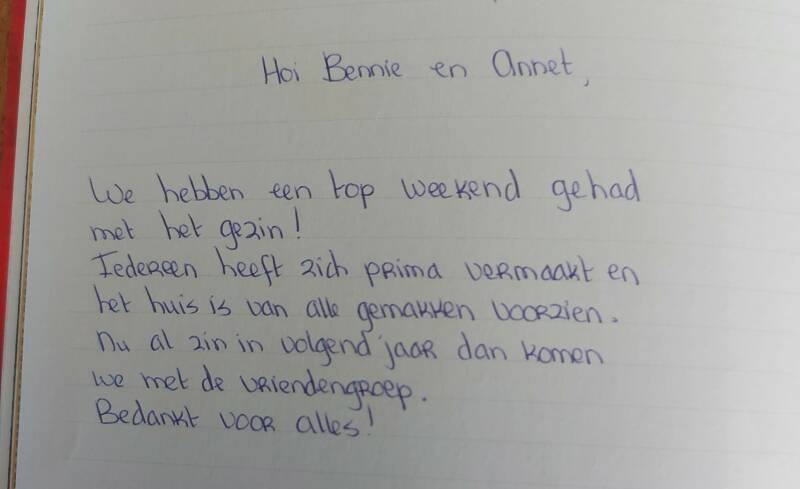 Hoi Bennie en Annet,
We hebben een top weekend gehad
met het gezin!
Iedereen heeft zich prima vermaakt en
het huis is van alle gemakken voorzien.
Nu al zin in volgend jaar dan komen
we met de vriendengroep.
Bedankt voor alles!